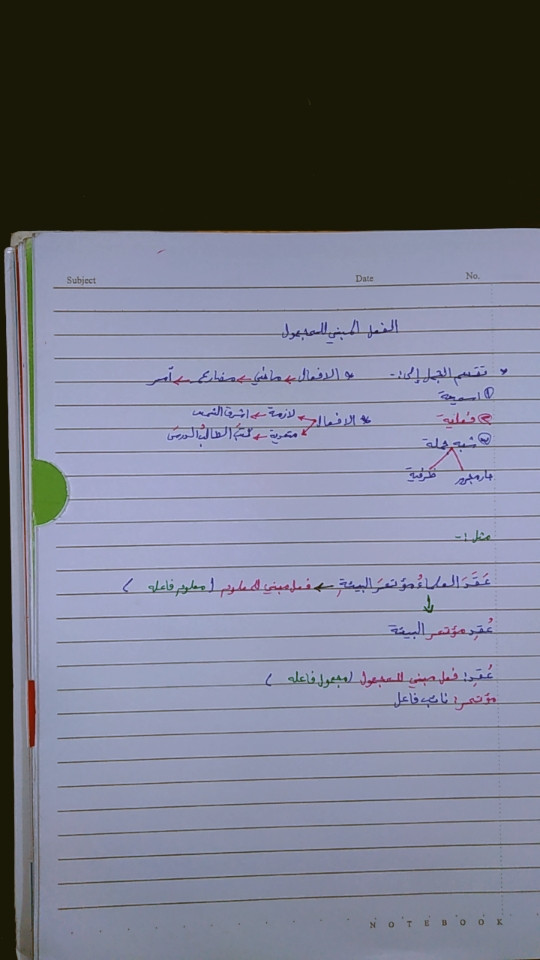 Subject Date No.
الفعل المبني للمجهول
* تقسم الجمل إلى :-
* الافعال ← ماضي ← مضارع ← أمر
① اسمية
② فعلية
* الافعال
لازمة ← اشرق الشمس
متعدية ← كتبَ الطالبُ الدرسَ
③ شبه جملة
جار مجرور ظرفية
مثل :-
عَقَدَ العلماءُ مؤتمرَ البيئةِ ← فعل مبني للمعلوم (معلوم فاعله)
↓
عُقِدَ مؤتمر البيئة
عُقِدَ: فعل مبني للمجهول (مجهول فاعله)
مؤتمر: نائب فاعل
NOTEBOOK